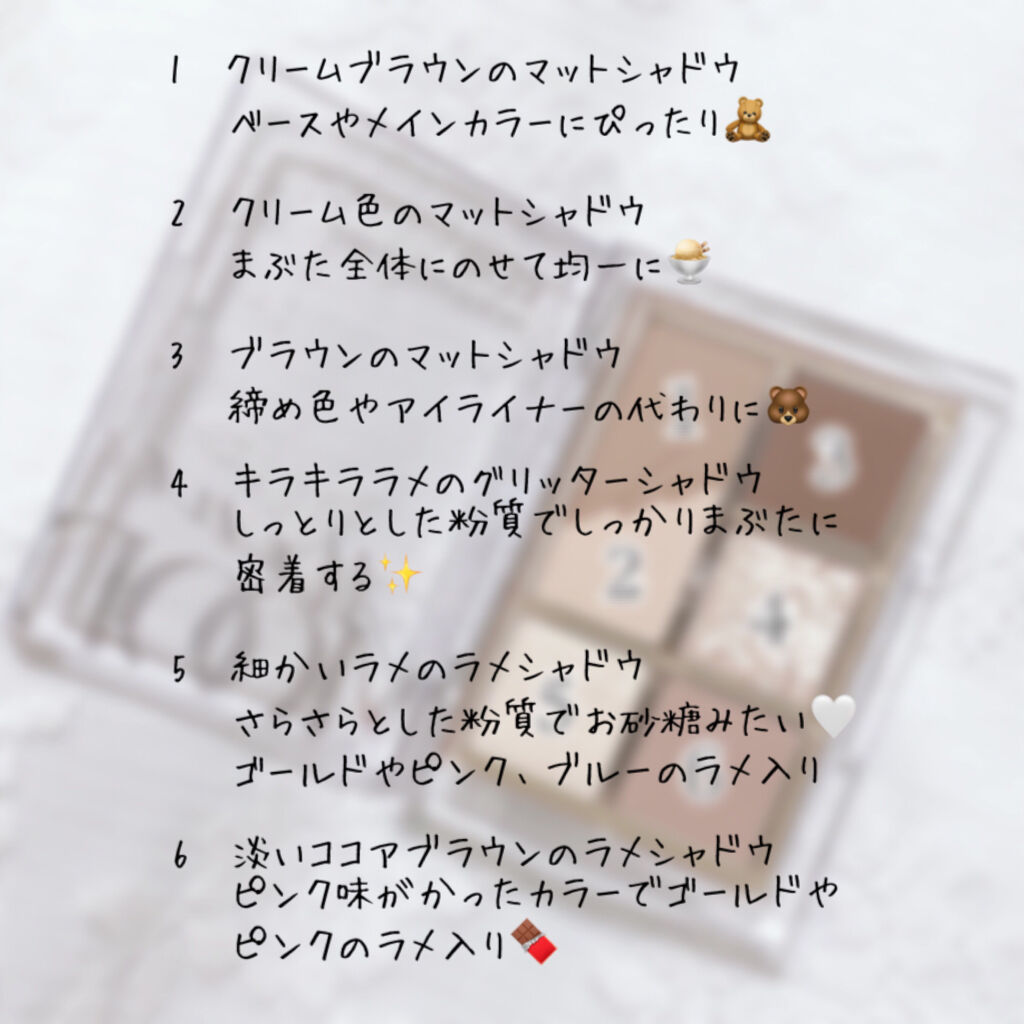 1 クリームブラウンのマットシャドウ
ベースやメインカラーにぴったり🧸
2 クリーム色のマットシャドウ
まぶた全体にのせて均一に🍨
3 ブラウンのマットシャドウ
締め色やアイライナーの代わりに🐻
4 キラキララメのグリッターシャドウ
しっとりとした粉質でしっかりまぶたに
密着する✨
5 細かいラメのラメシャドウ
さらさらとした粉質でお砂糖みたい🤍
ゴールドやピンク、ブルーのラメ入り
6 淡いココアブラウンのラメシャドウ
ピンク味がかったカラーでゴールドや
ピンクのラメ入り🍫
1
3
2
4
5
6